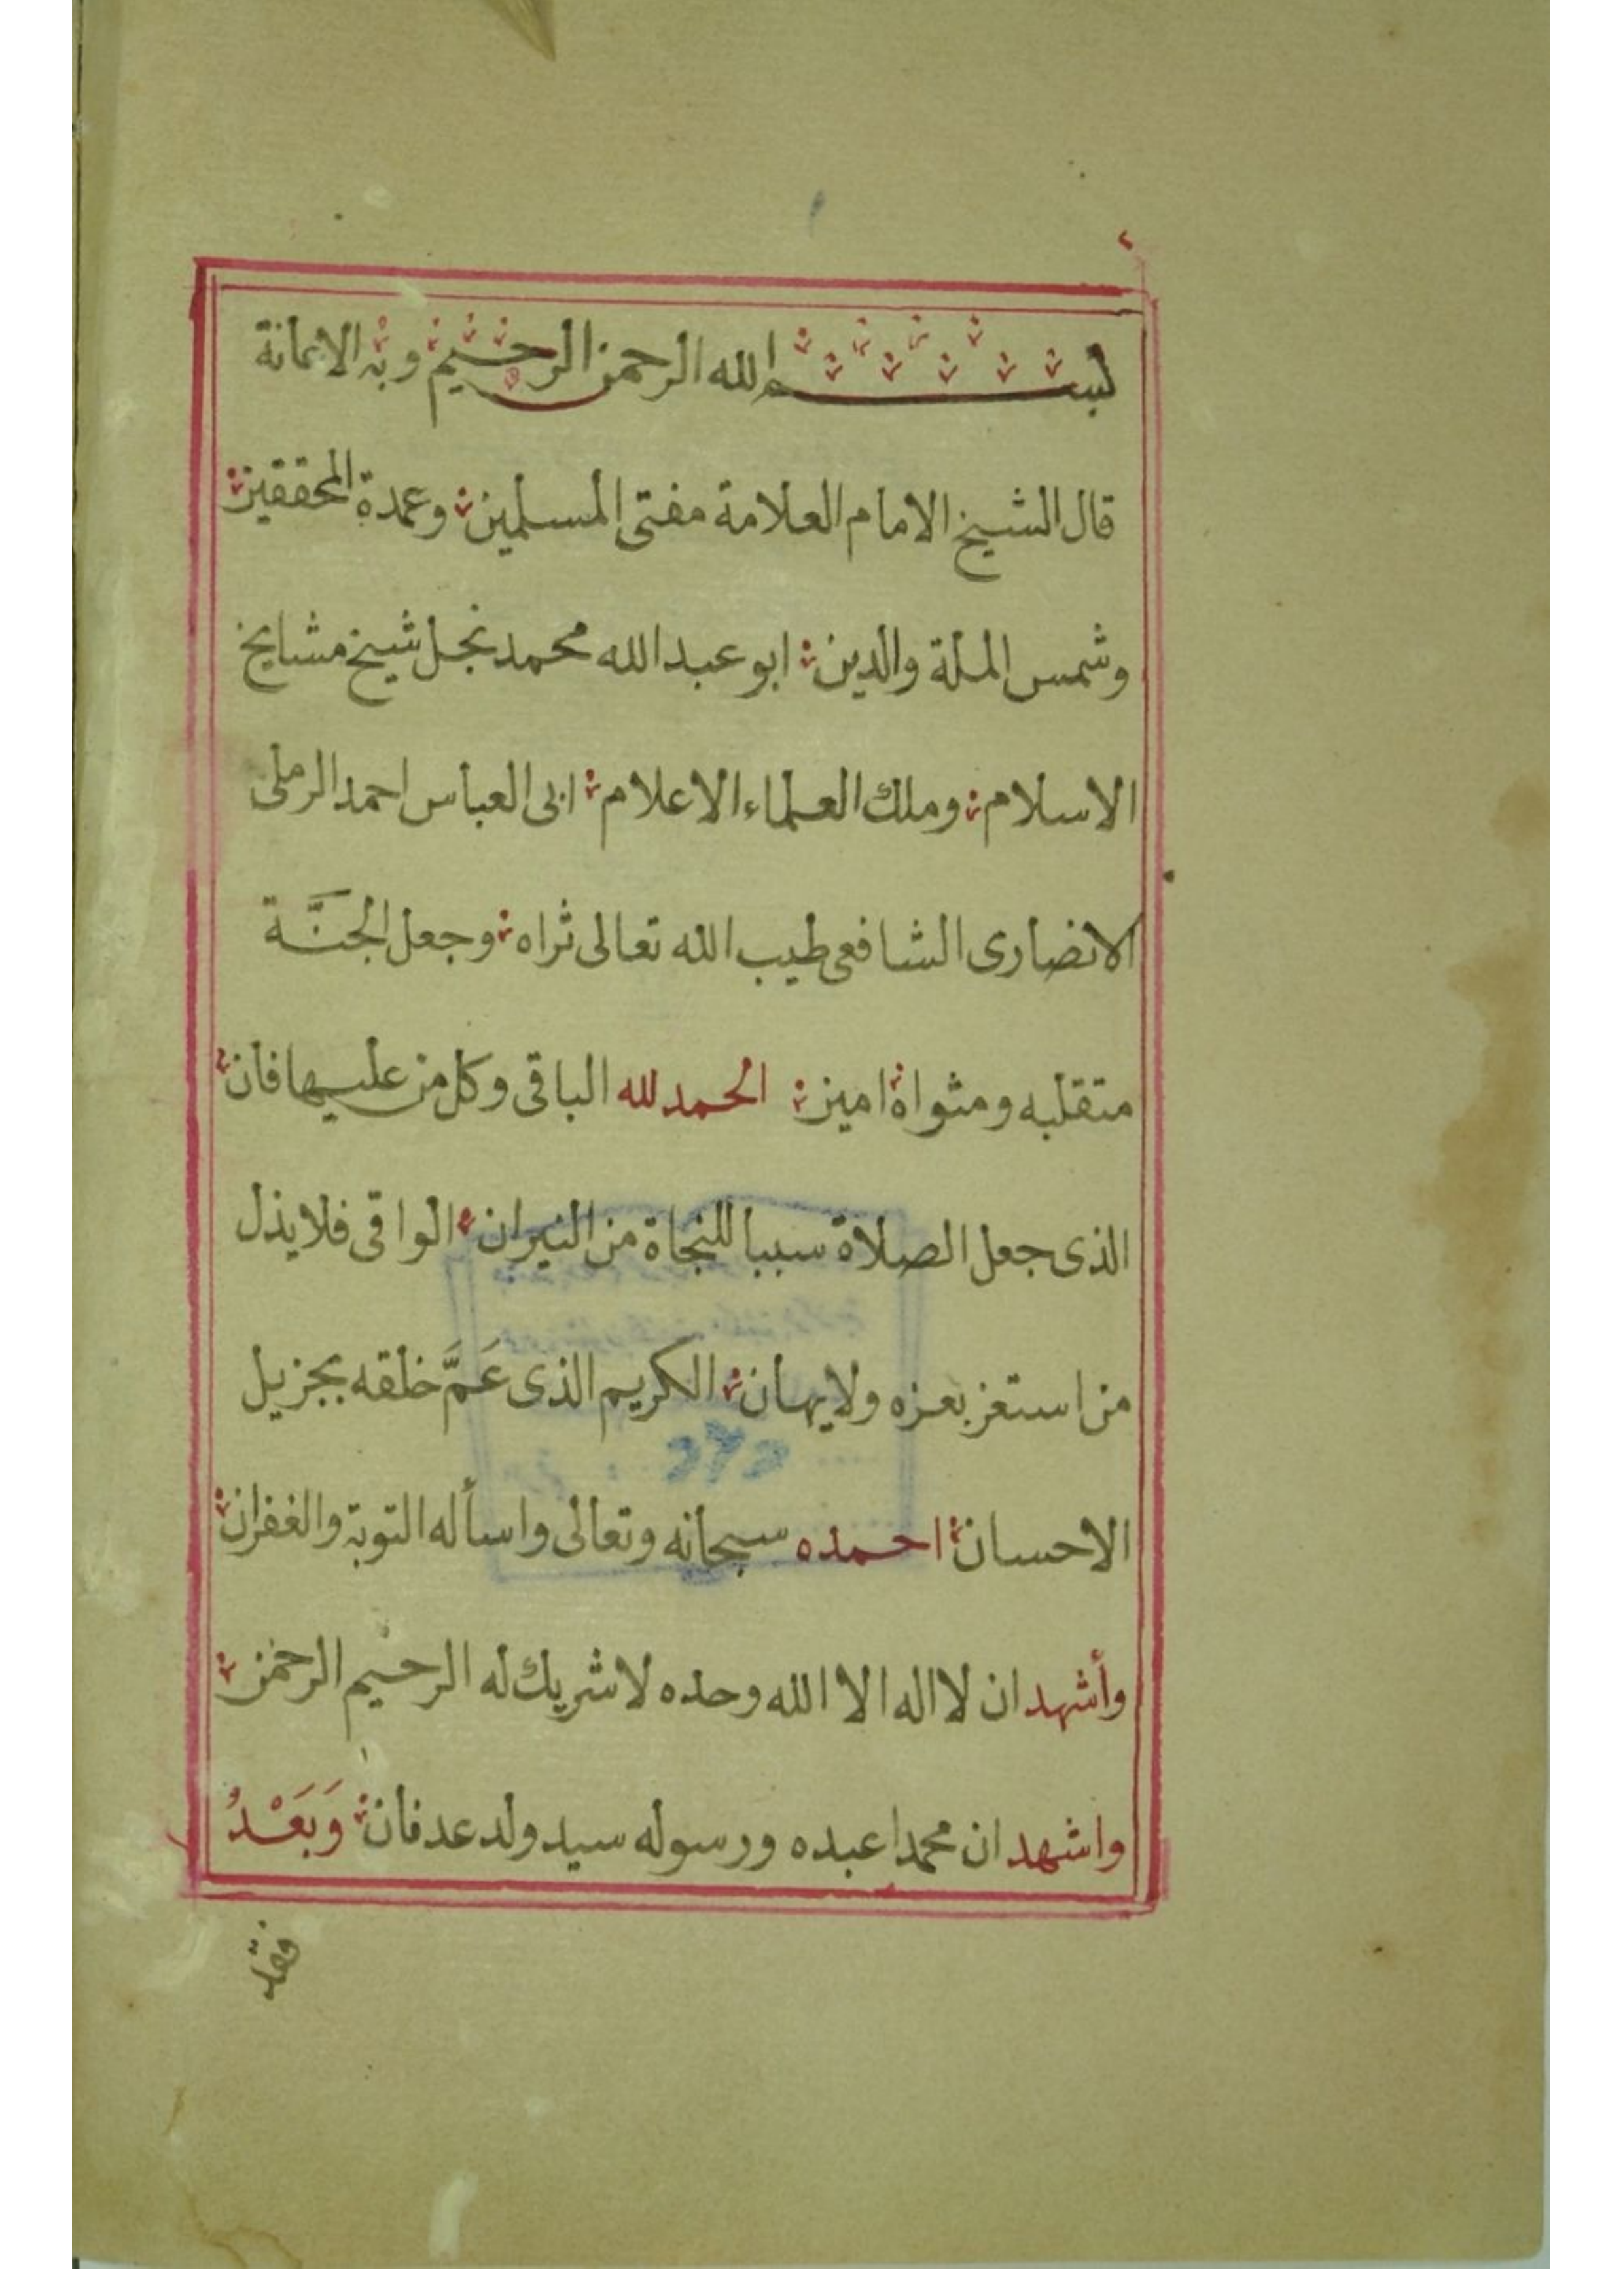 بسم الله الرحمن الرحيم وبه الاعانة
قال الشيخ الامام العلامة مفتى المسلمين وعمدة المحققين
وشمس الملة والدين ابو عبد الله محمد نجل شيخ مشايخ
الاسلام وملك العلماء الاعلام ابى العباس احمد الرملى
الانصارى الشافعى طيب الله تعالى ثراه وجعل الجنَّة
متقلبه ومثواه امين الحمد لله الباقى وكل من عليها فان
الذى جعل الصلاة سببا للنجاة من النيران الواقى فلا يذل
من استعز بعزه ولا يهان الكريم الذى عَمَّ خلقه بجزيل
الاحسان احمده سبحانه وتعالى واسأله التوبة والغفران
وأشهد ان لا اله الا الله وحده لا شريك له الرحيم الرحمن
واشهد ان محمدا عبده ورسوله سيد ولد عدنان وَبَعْدُ
فقد